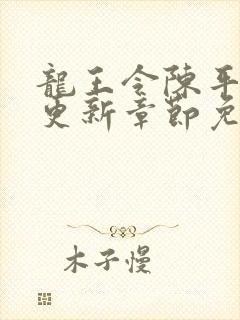 龍王令陳平
更新章節免
木子慢